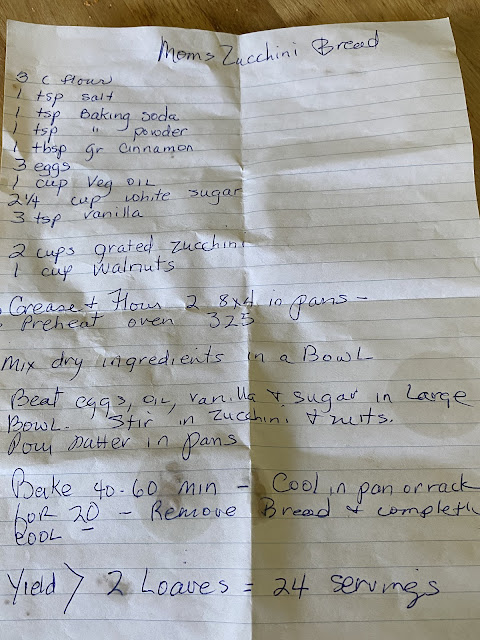 Moms Zucchini Bread
3 c flour
1 tsp salt
1 tsp Baking soda
1 tsp " powder
1 tbsp gr Cinnamon
3 eggs
1 cup Veg OIL
2 1/4 cup white sugar
3 tsp vanilla
2 cups grated Zucchini
1 cup walnuts
Grease & Flour 2 8x4 in pans -
Preheat oven 325
Mix dry ingredients in a Bowl
Beat eggs, OIL, vanilla & sugar in Large
Bowl. Stir in Zucchini & nuts.
Pour batter in pans
Bake 40-60 min - Cool in pan or rack
for 20 - Remove Bread & completl
cool
Yield > 2 Loaves = 24 servings